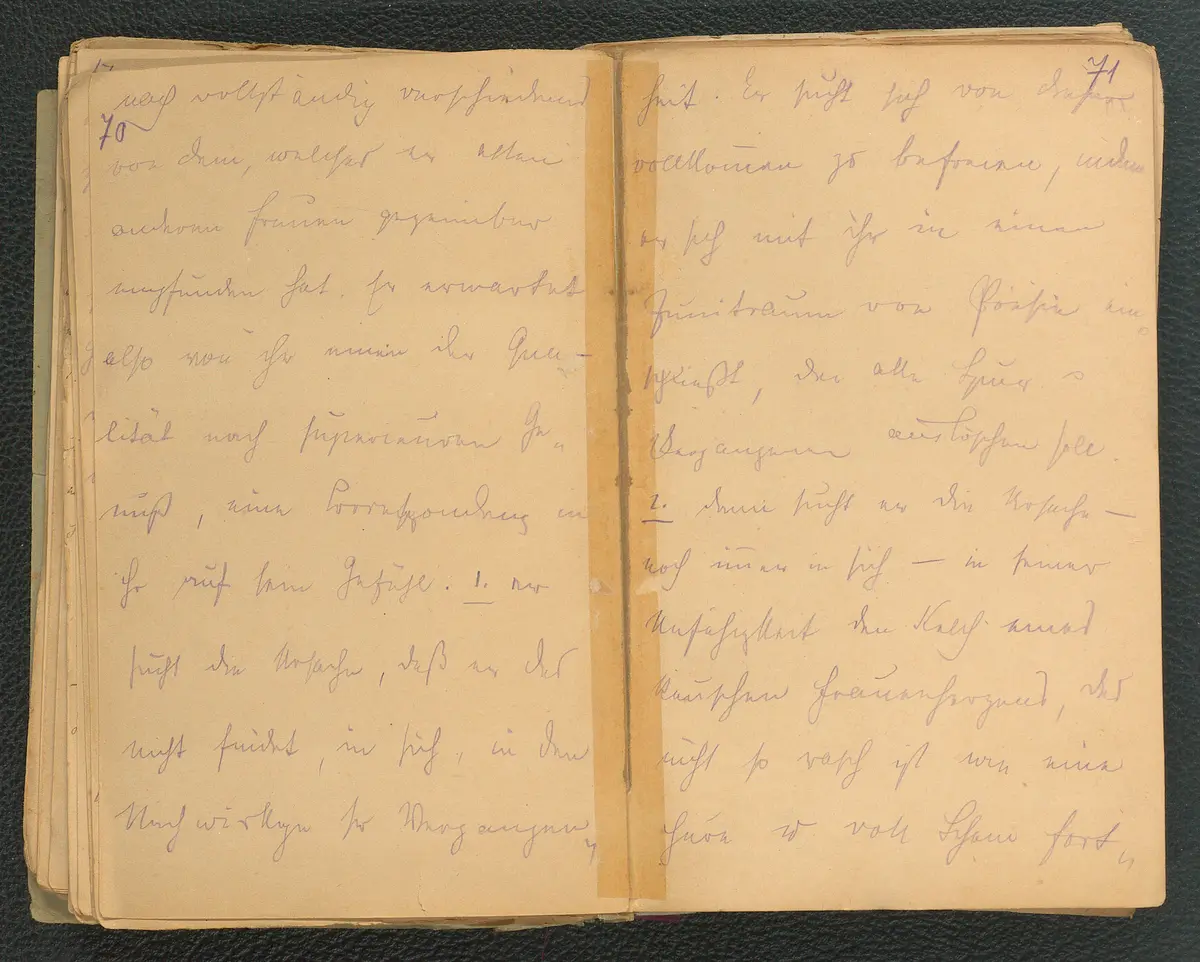 70
nach vollständig verschiedenes
von dem, welches er allen
anderen Frauen gegenüber
empfunden hat. Er erwartet
also von ihr einen der Qua-
lität nach superieuren Ge„
nuß, eine Correspondenz in
ihr auf sein Gefühl. 1. er
sucht die Ursache, daß er das
nicht findet, in sich, in den
Nachwirkgn sr Vergangen„
71
heit. Er sucht sich von dieser
vollkomen zu befreien, indem
er sich mit ihr in einen
traum von Poesie ein„
schließt, der alle Spur
Vergangenen auslöschen soll.
2. dann sucht er die Ursache –
noch imer in sich – in seiner
Unfähigkeit den Kelch eines
keuschen Frauenherzens, das
nicht so rasch ist wie eine
voll Scham fort„